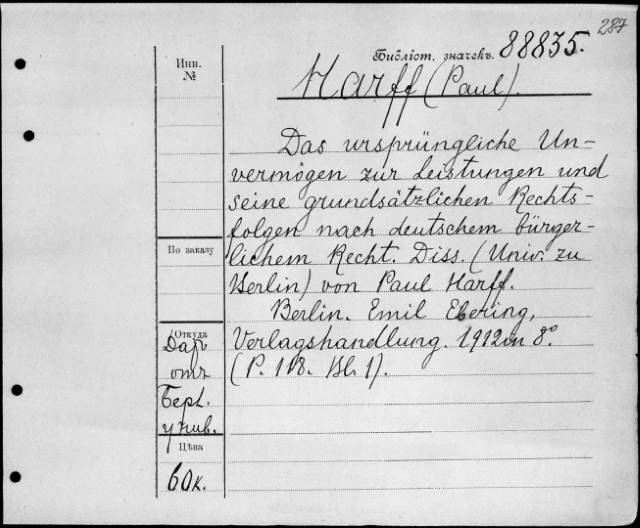 287
Библіот. значекъ. 88835.
Инв.
№
Harff (Paul).
Das ursprüngliche Un-
vermögen zur Leistungen und
seine grundsätzlichen Rechts-
folgen nach deutschem bürger-
lichem Recht. Diss. (Univ. zu
Berlin) von Paul Harff.
Berlin. Emil Ebering,
Verlagshandlung. 1912 in 8°
(P. 118. Bl. 1).
По заказу
Откуда
Дар
отъ
Берл.
унив.
Цѣна
60к.